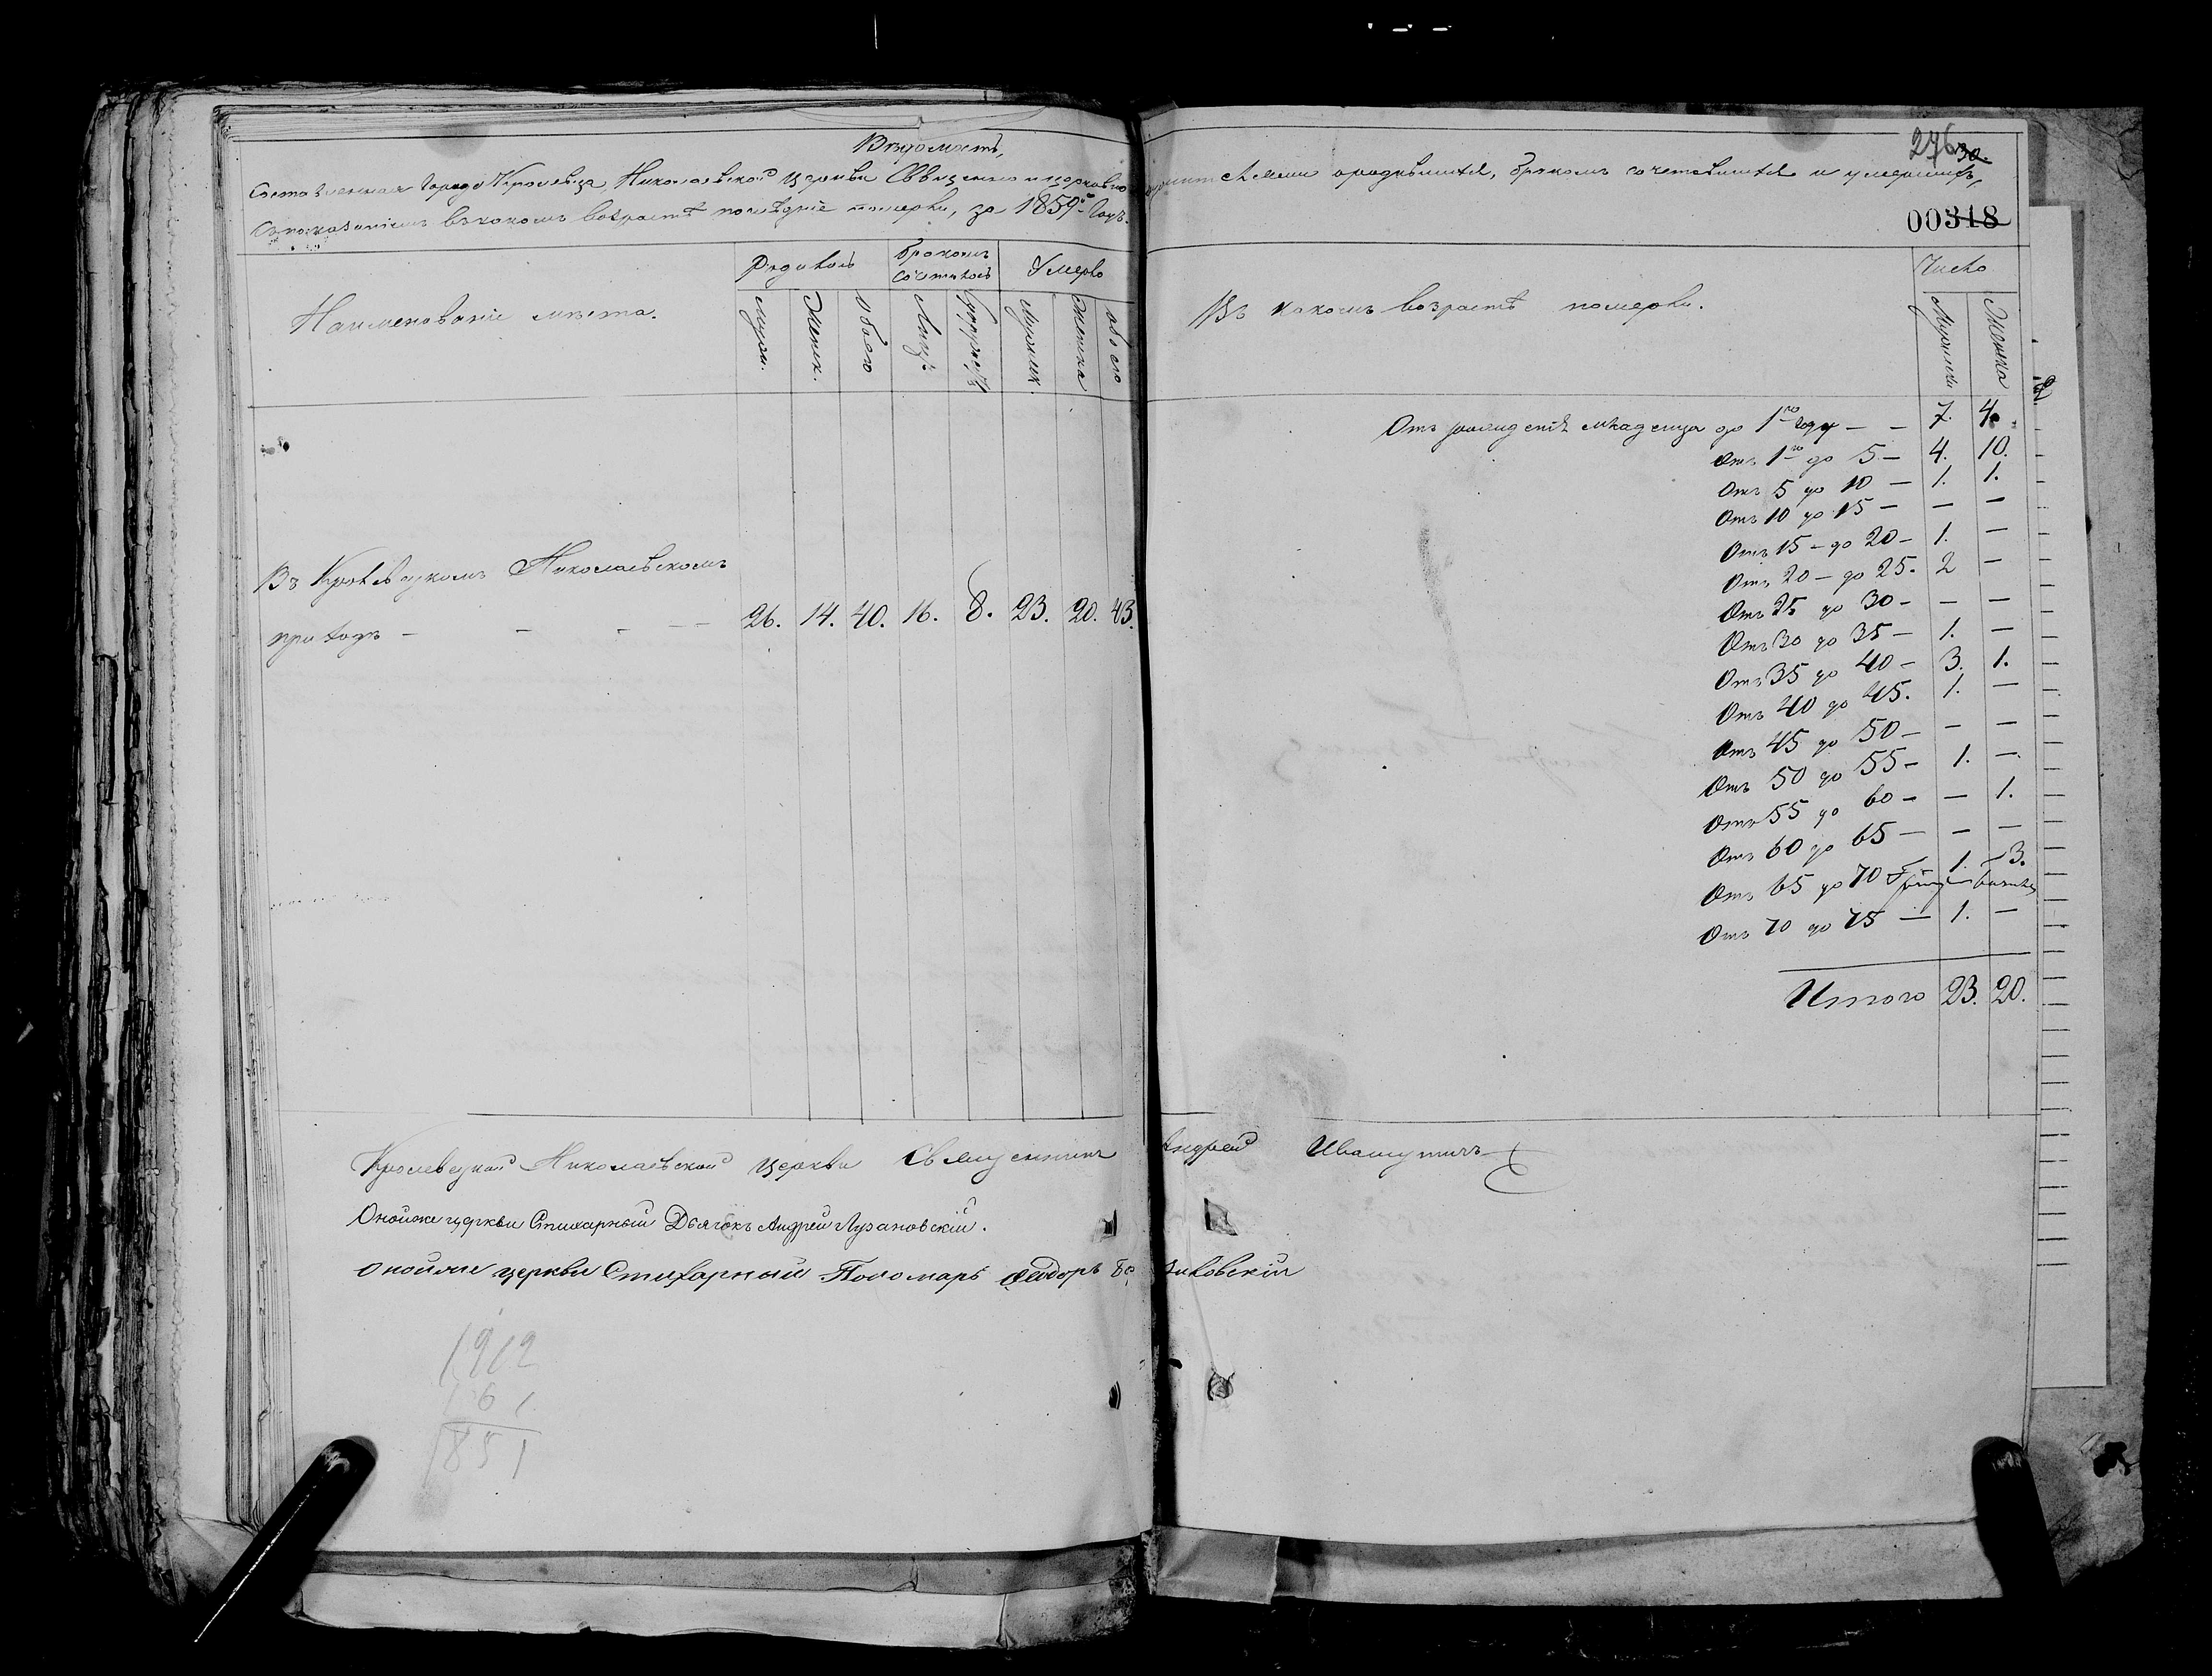 Вѣдомость,
Составленная города Кролевца, Николаевской церкви Священно и церковно служителями о родившихся, бракомъ сочетавшихся и умершихъ,
съ показаніемъ въ какомъ возрастѣ послѣдніе померли, за 1859й годъ.
276 30.
00318
Наименованіе мѣста.
Родилось
Бракомъ сочеталось
Умерло
Въ какомъ возрастѣ померли.
Число
Муж. Женск. Обоего Лицъ Мужеск. Женска обоего
Мужеска Женска
Въ Кролевецкомъ Николаевскомъ
приходѣ - - - - 26. 14. 40. 16. 8. 23. 20. 43.
Отъ младенца до 1го году — — 7. 4.
Отъ 1го до 5 — 4. 10.
Отъ 5 до 10 — 1. 1.
Отъ 10 до 15 — — —
Отъ 15 — до 20 — 1. —
Отъ 20 — до 25. 2 —
Отъ 25 до 30 — — —
Отъ 30 до 35 — 1. —
Отъ 35 до 40 — 3. 1.
Отъ 40 до 45. 1. —
Отъ 45 до 50 — — —
Отъ 50 до 55 — 1. —
Отъ 55 до 60 — — 1.
Отъ 60 до 65 — — —
Отъ 65 до 70 1. 3.
Отъ 70 до 75 — 1. —
Итого 23. 20.
Кролевецкой Николаевской церкви Священникъ Андрей Ивашутичъ
Оной же церкви Стихарный Дьячокъ Андрей Лузановскій.
Оной же церкви Стихарный Пономарь Ѳеодоръ
1912
61
1851